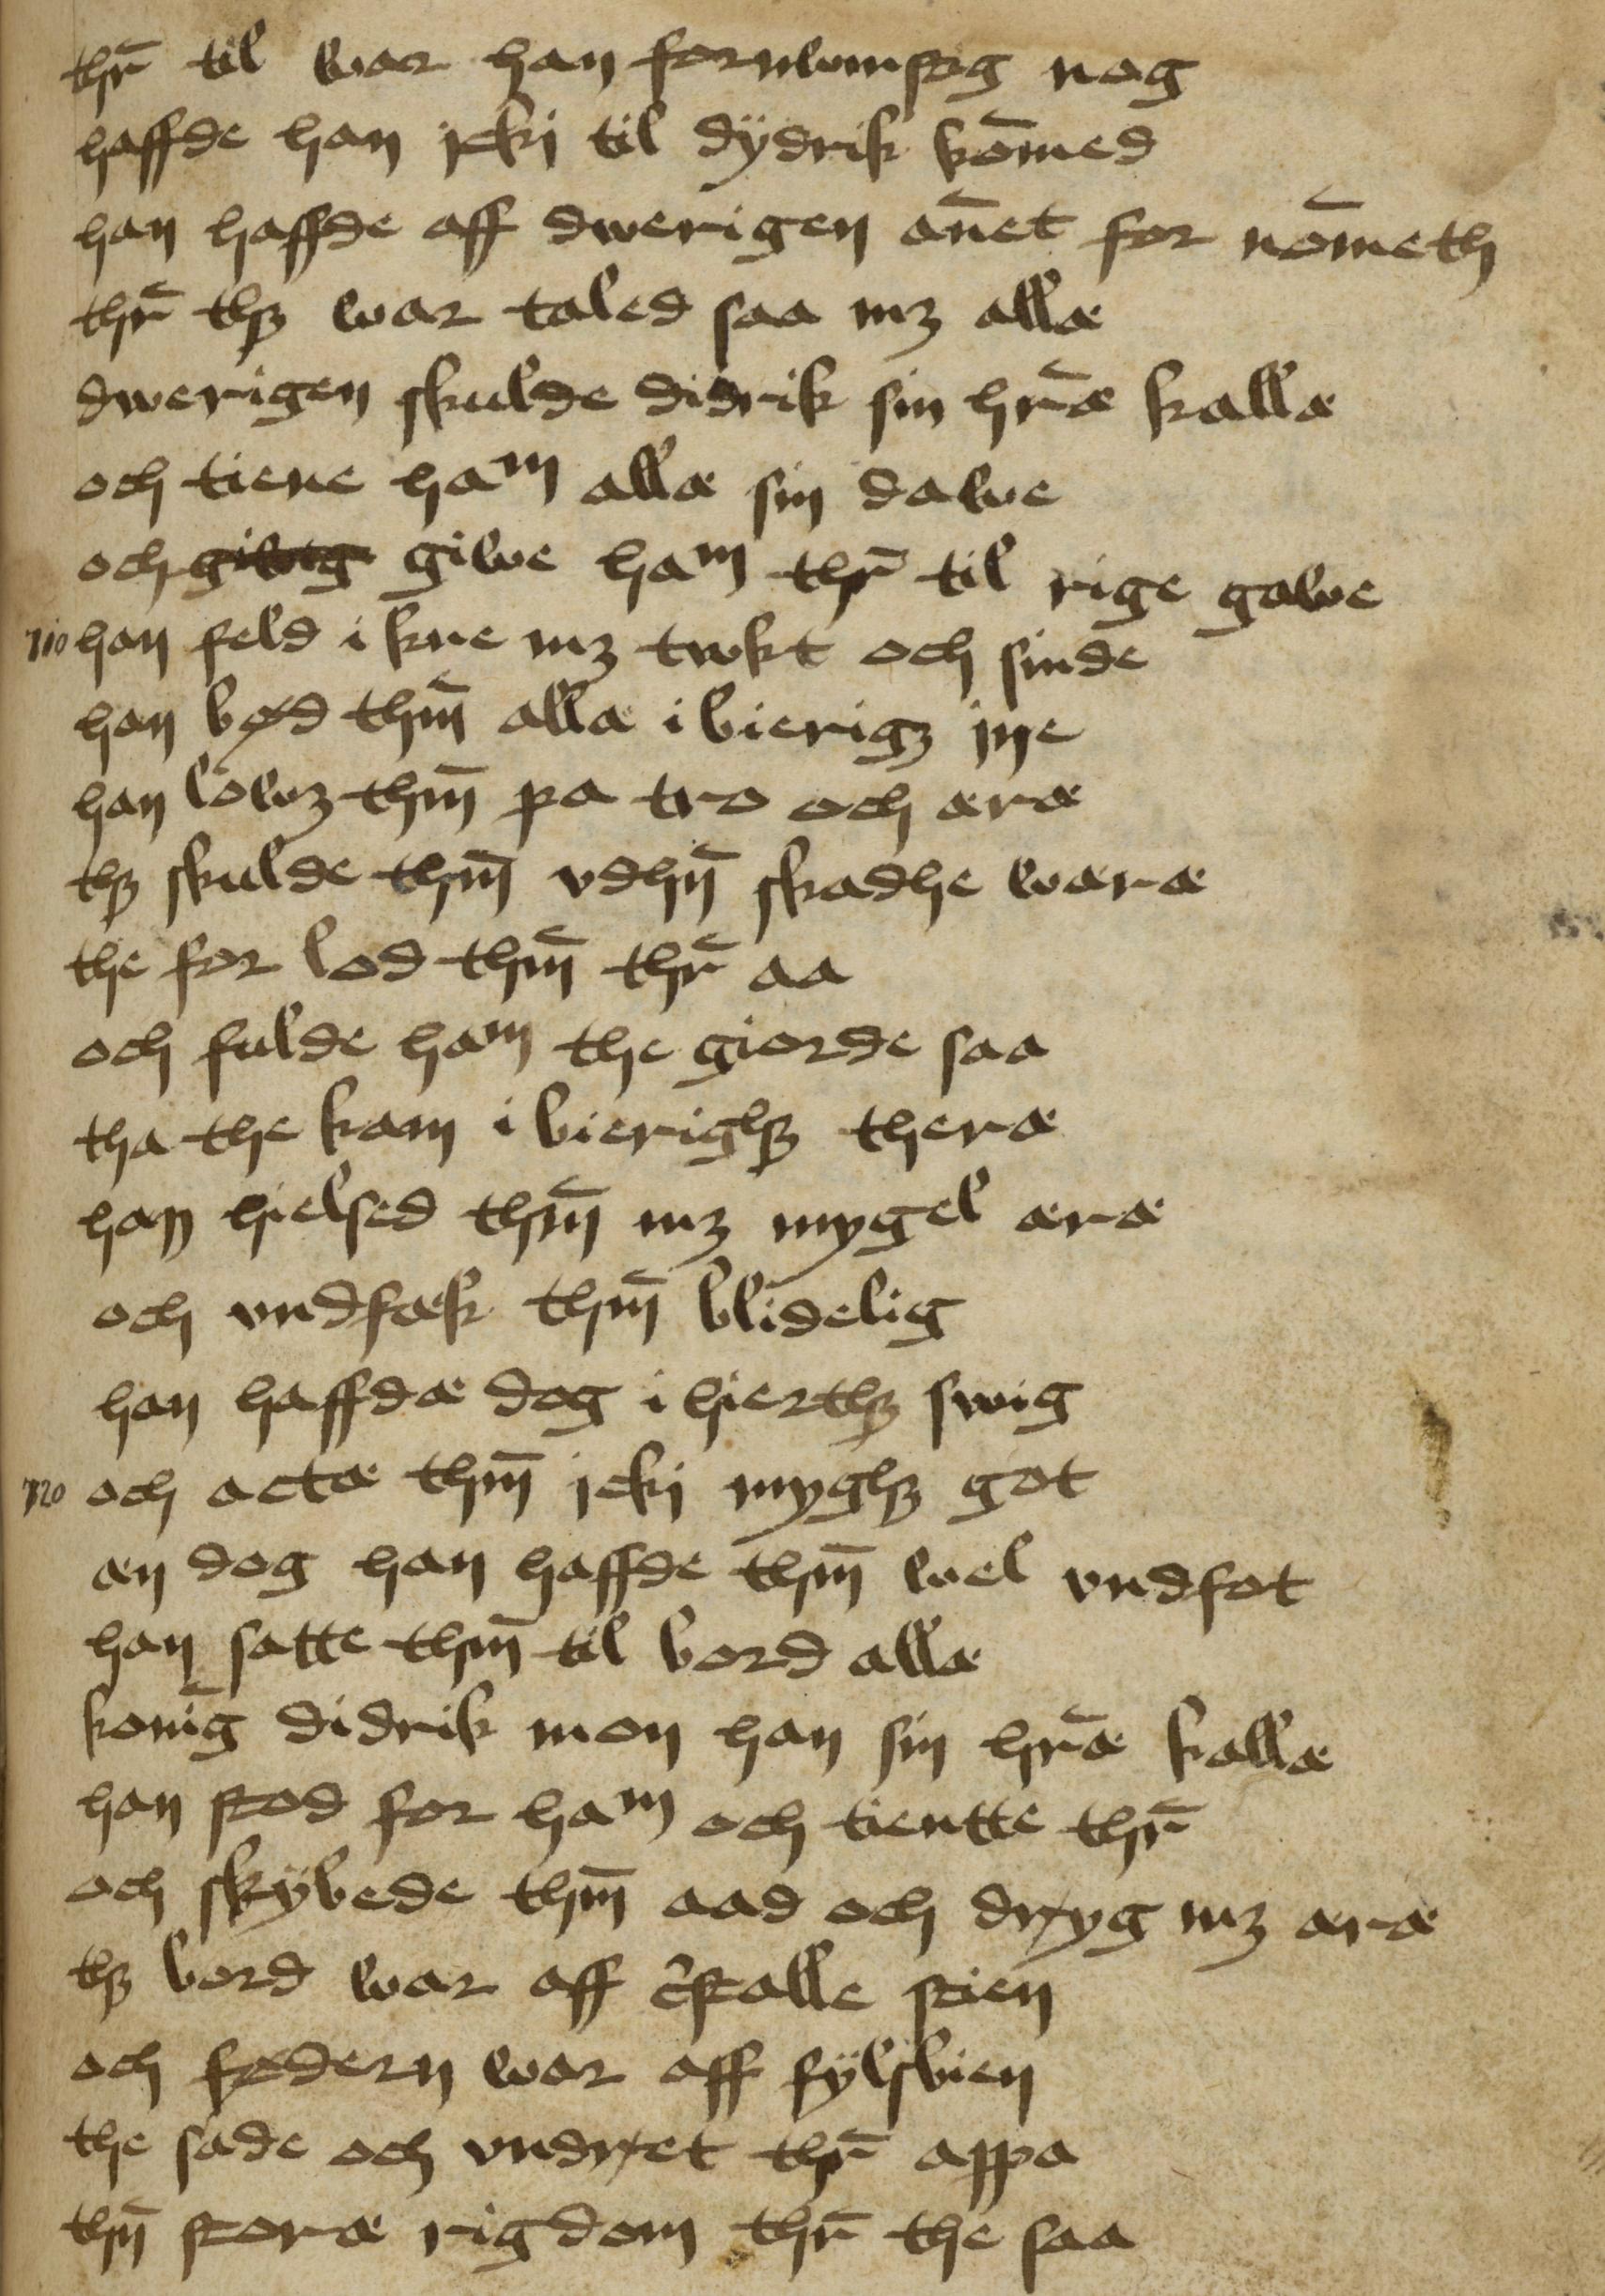 thr̄ til war han fornwmstog nog
haffde han jcki til dÿdrik kōmed
han haffde aff dwerigen an̄et for nōmeth
thr̄ thꝫ war taled saa mꝫ allæ
dwerigen skulde didrik sin hr̄æ kallæ
och tiene ham allæ sin dawe
och giweg giwe ham thr̄ til rige gawe
710 han feld i kne mꝫ twkt och sinde
han bød thm̄ allæ i bierigꝫ jne
han lowꝫ thm̄ pa tro och æræ
thꝫ skulde thm̄ vdhn̄ skadhe wæræ
the for lod thm̄ thr̄ aa
och fulde ham the giorde saa
tha the kam i bierighꝫ theræ
han hielsed thm̄ mꝫ mygel æræ
och vndfæk thm̄ blidelig
han haffdæ dog i hierthꝫ swig
720 och actæ thm̄ jcki myghꝫ got
æn dog han haffde thm̄ wel vndfot
han satte thm̄ til bord allæ
konīg didrik mon han sin hr̄æ kallæ
han stod for ham och tientte thr̄
och skÿbede thm̄ aad och drøyg mꝫ æræ
thꝫ bord war aff c̄stalle stien
och fødern war aff fÿlsbien
the sade och vndrøet thr̄ appa
thn̄ storæ rigdom thr̄ the saa